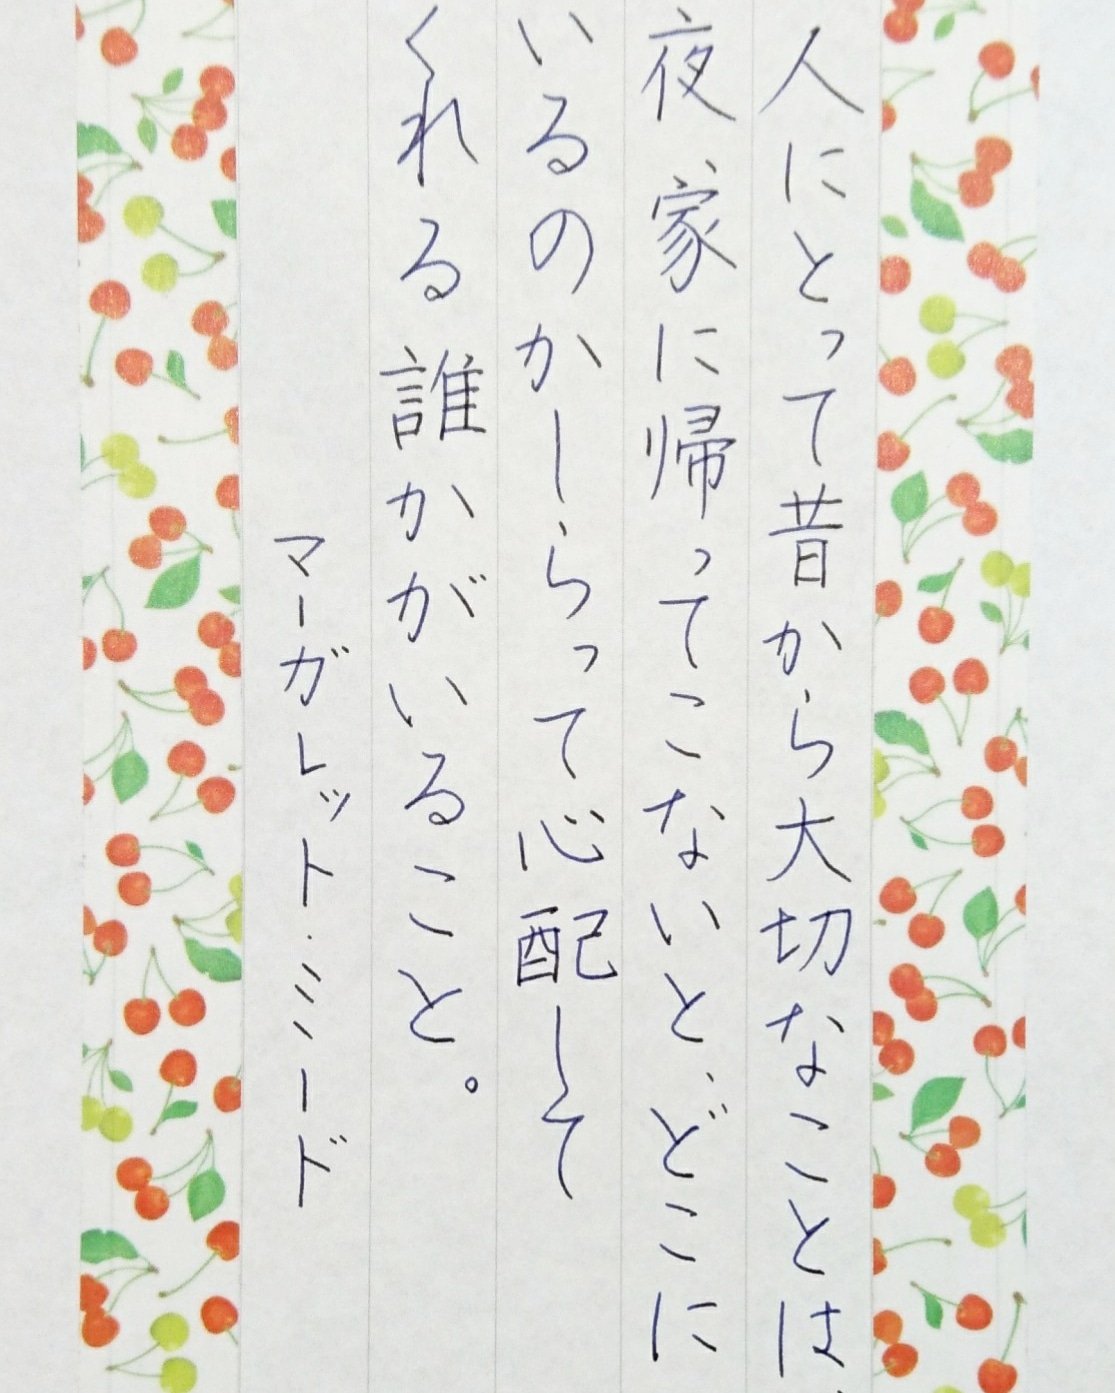 人にとって昔から大切なことは、
夜、家に帰ってこないと、どこに
いるのかしらって心配して
くれる誰かがいること。
マーガレット・ミード